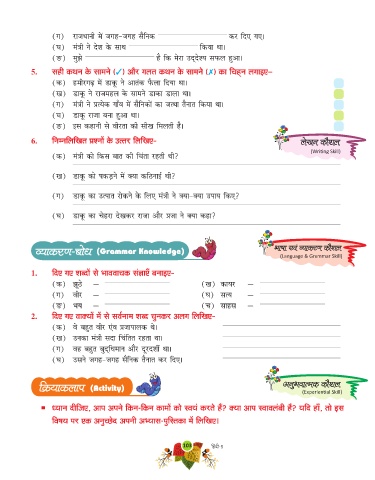 (ग) राजधानी में जगह-जगह सैनिक कर दिए गए।
(घ) मंत्री ने देश के साथ किया था।
(ङ) मुझे है कि मेरा उद्देश्य सफल हुआ।
5. सही कथन के सामने (✓) और गलत कथन के सामने (✗) का चिह्न लगाइए-
(क) हमीरगढ़ में डाकू ने आतंक फैला दिया था।
(ख) डाकू ने राजमहल के सामने डाका डाला था।
(ग) मंत्री ने प्रत्येक गाँव में सैनिकों का जत्था तैनात किया था।
(घ) डाकू राजा बना हुआ था।
(ङ) इस कहानी से वीरता की सीख मिलती है।
6. निम्नलिखित प्रश्नों के उत्तर लिखिए-
लेखन कौशल
(Writing Skill)
(क) मंत्री को किस बात की चिंता रहती थी?
(ख) डाकू को पकड़ने में क्या कठिनाई थी?
(ग) डाकू का उत्पात रोकने के लिए मंत्री ने क्या-क्या उपाय किए?
(घ) डाकू का चेहरा देखकर राजा और प्रजा ने क्या कहा?
व्याकरण-बोध (Grammar Knowledge)
भाषा एवं व्याकरण कौशल
(Language & Grammar Skill)
1. दिए गए शब्दों से भाववाचक संज्ञाएँ बनाइए-
(क) झूठे – (ख) कायर –
(ग) वीर – (घ) सत्य –
(ङ) भय – (च) साहस –
2. दिए गए वाक्यों में से सर्वनाम शब्द चुनकर अलग लिखिए-
(क) वे बहुत वीर एंव प्रजापालक थे।
(ख) उनका मंत्री सदा चिंतित रहता था।
(ग) वह बहुत बुद्धिमान और दूरदर्शी था।
(घ) उसने जगह-जगह सैनिक तैनात कर दिए।
क्रियाकलाप (Activity)
अनुभवात्मक कौशल
(Experiential Skill)
■ ध्यान दीजिए, आप अपने किन-किन कामों को स्वयं करते हैं? क्या आप स्वावलंबी हैं? यदि हाँ, तो इस
विषय पर एक अनुच्छेद अपनी अभ्यास-पुस्तिका में लिखिए।
103 हिंदी